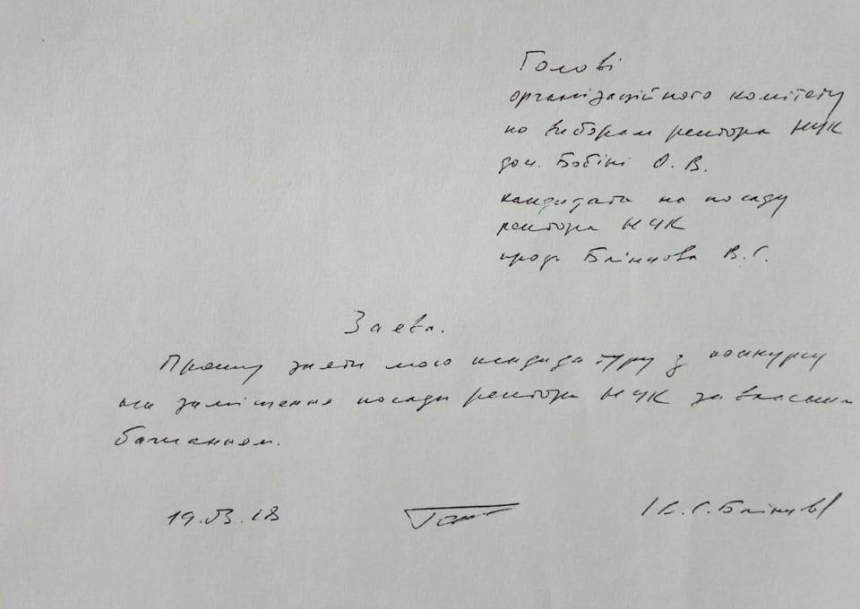 Голові
організаційного комітету
по виборам ректора НУК
доц. Бобіні О. В.
кандидата на посаду
ректора НУК
проф. Блінцова В.С.
Заява.
Прошу зняти мою кандидатуру з конкурсу
на заміщення посади ректора НУК за власним
бажанням.
19.03.18 (В.С.Блінцов)